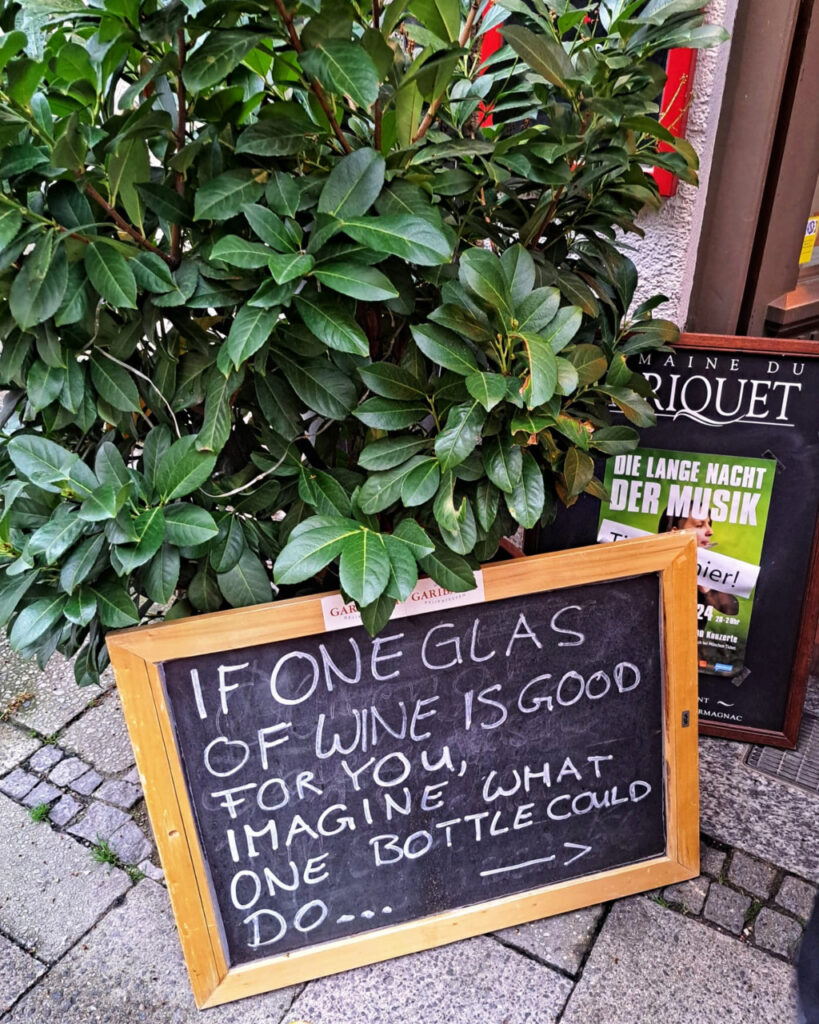 MAINE DU
RIQUET
DIE LANGE NACHT
DER MUSIK
hier!
24 20-2 Uhr
Konzerte
GARIB
IF ONE GLAS
OF WINE IS GOOD
FOR YOU,
IMAGINE WHAT
ONE BOTTLE COULD
DO....
——>
RMAGNAC